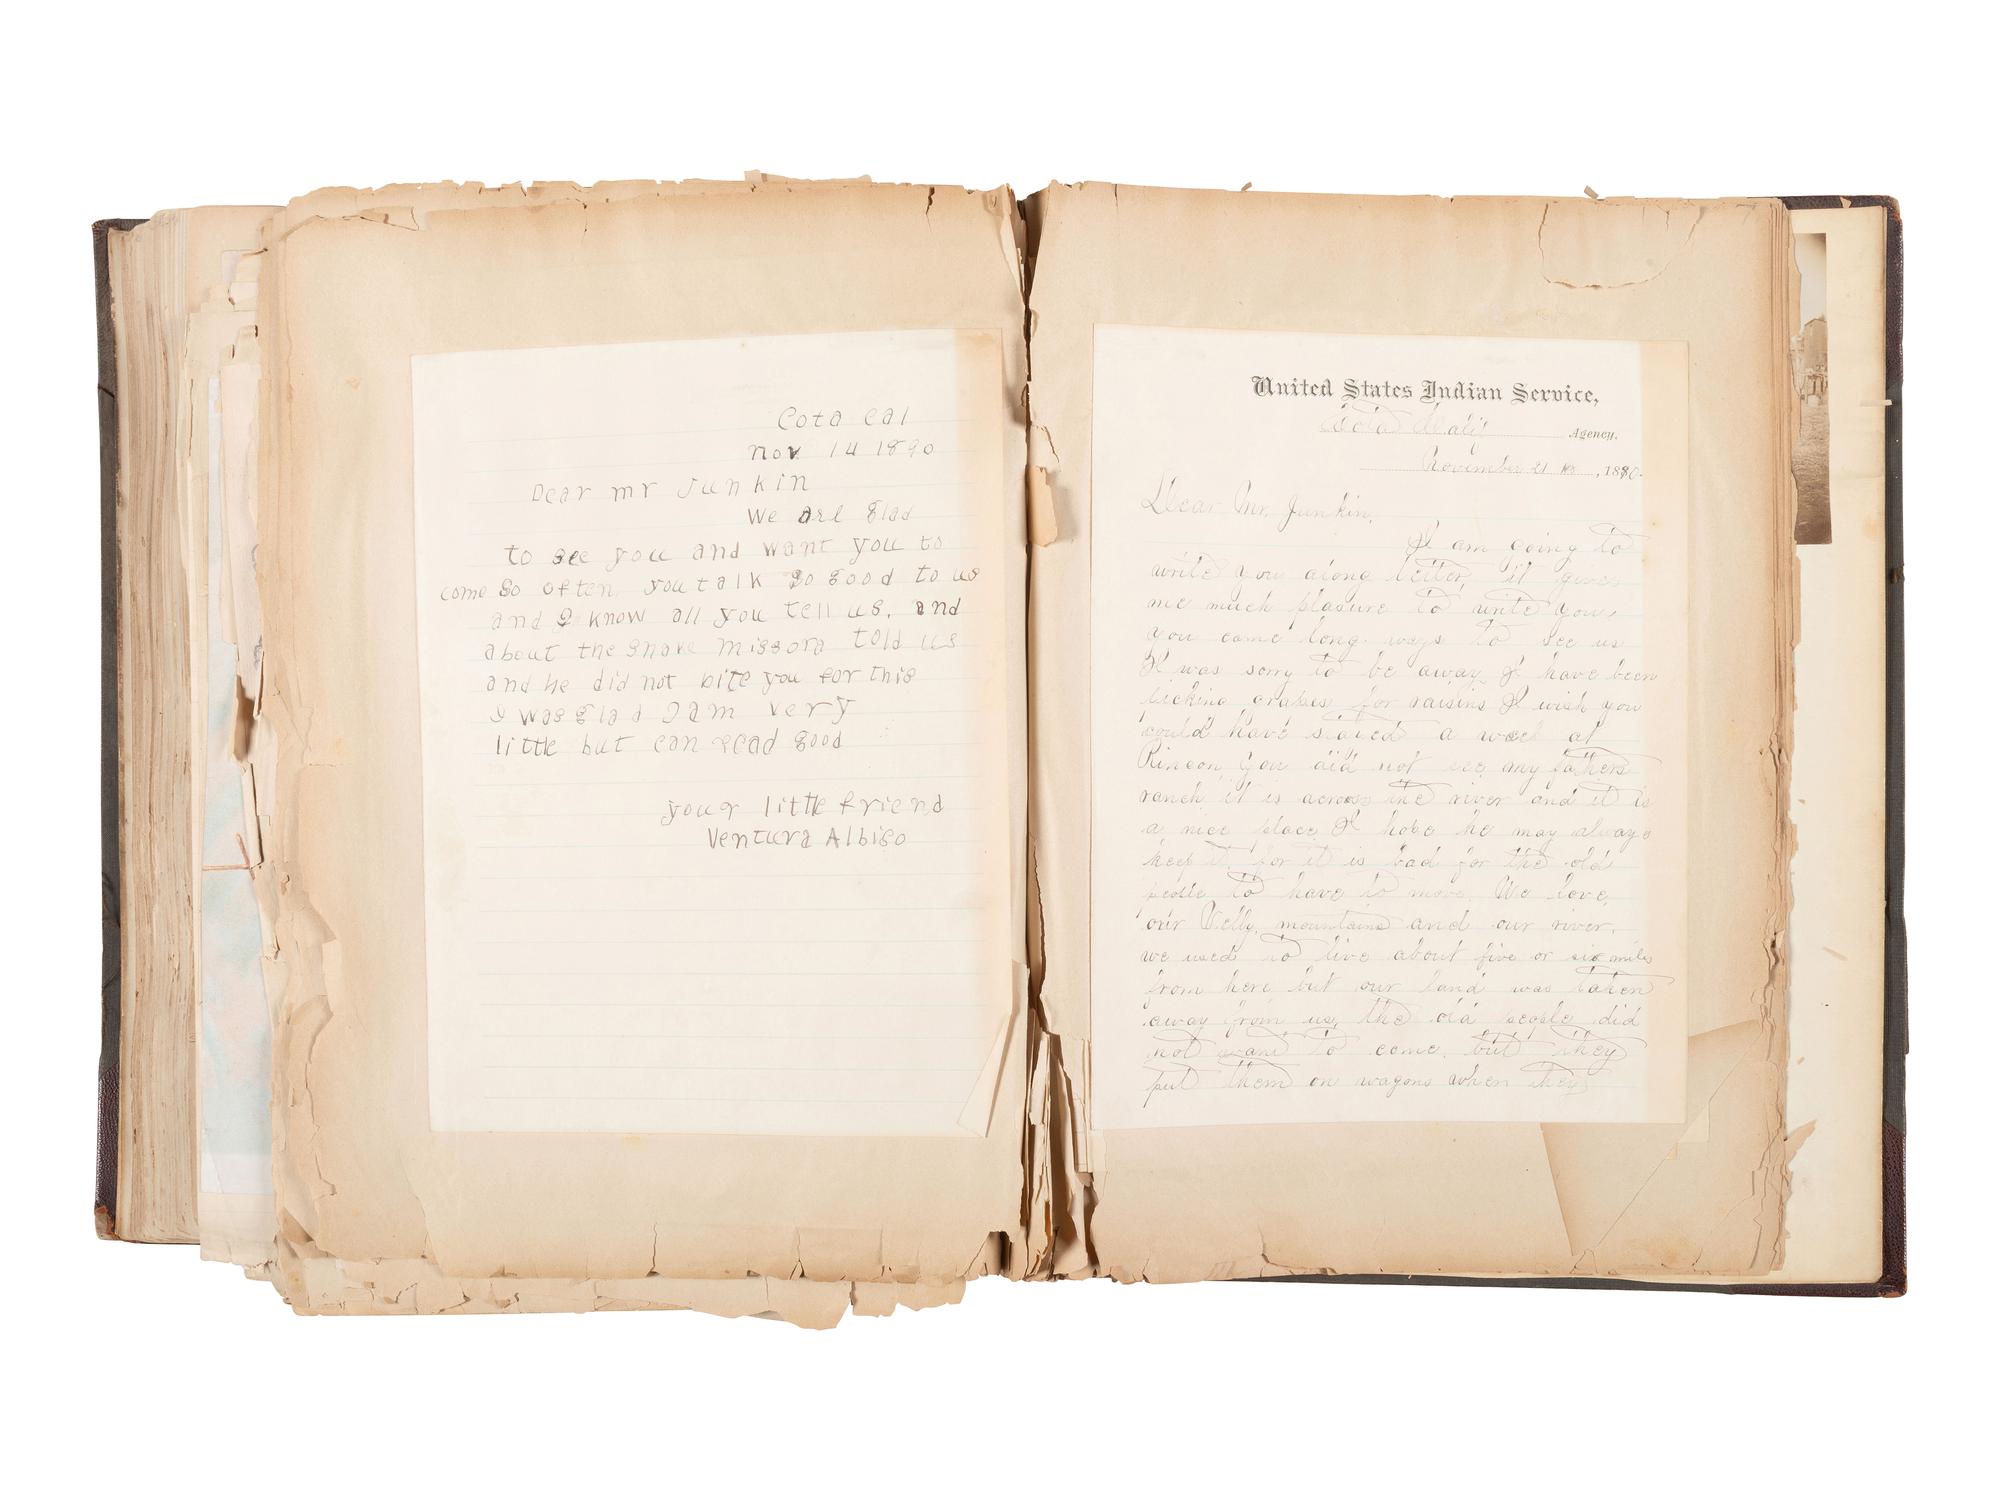 Cota Cal
Nov 14 1890
Dear mr Junkin
We are glad
to see you and want you to
come so often you talk so good to us
and I know all you tell us. and
about the snake missora told us
and he did not bite you for this
I was glad I am very
little but can read good
your little friend
Ventura Albiso
United States Indian Service,
Cota Calif Agency.
November 21 , 1890.
Dear Mr. Junkin,
I am going to
write you along letter, it gives
me much plasure to write you,
you come long ways to see us
I was sorry to be away, I have been
picking grapes for raisins I wish you
could have staied a week at
Rincon you did not see my fathers
ranch it is across the river and it is
a nice place, I hope he may always
keep it, for it is bad for the old
people to have to move. We love,
our Velly, mountains and our river.
we used to live about five or six miles
from here but our land was taken
away from us, the old people did
not want to come, but they
put them on wagons when they